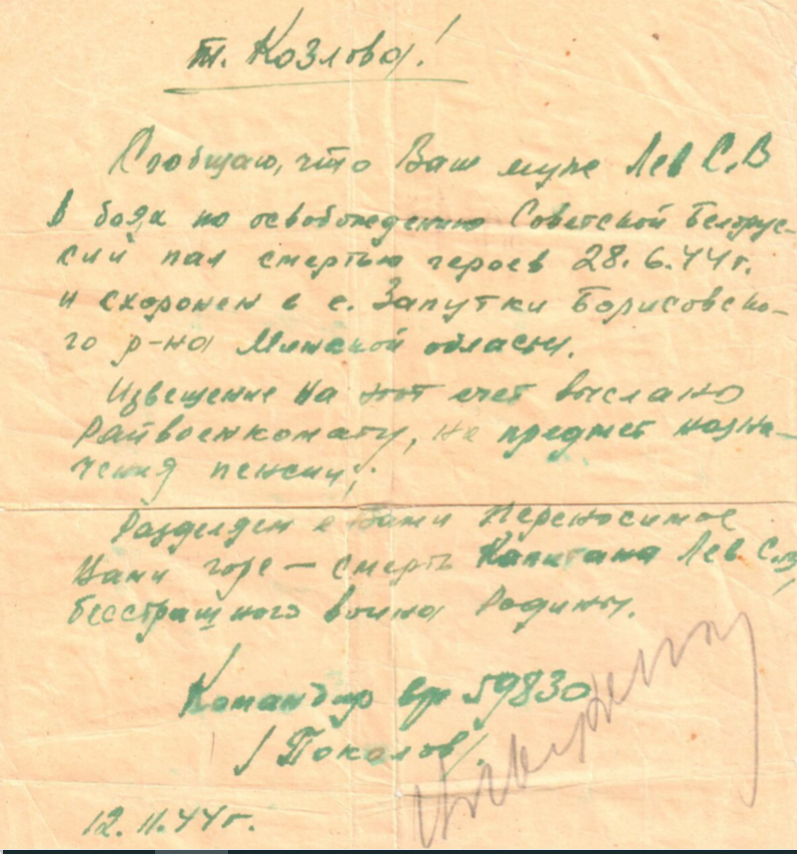 т. Козлова!
Сообщаю, что Ваш муж Лев С.В
в боях по освобождению Советской Белорус-
сии пал смертью героев 28.6.44г.
и схоронен в с. Запутки Борисовско-
го р-на Минской области.
Извещение на этот счет выслано
Райвоенкомату, на предмет назна-
чения пенсии,
Разделяем с Вами переносимое
Вами горе – смерть Капитана Лев С.В,
бесстрашного воина Родины.
Командир вч 59830
/Покалов/.
12.11.44г.